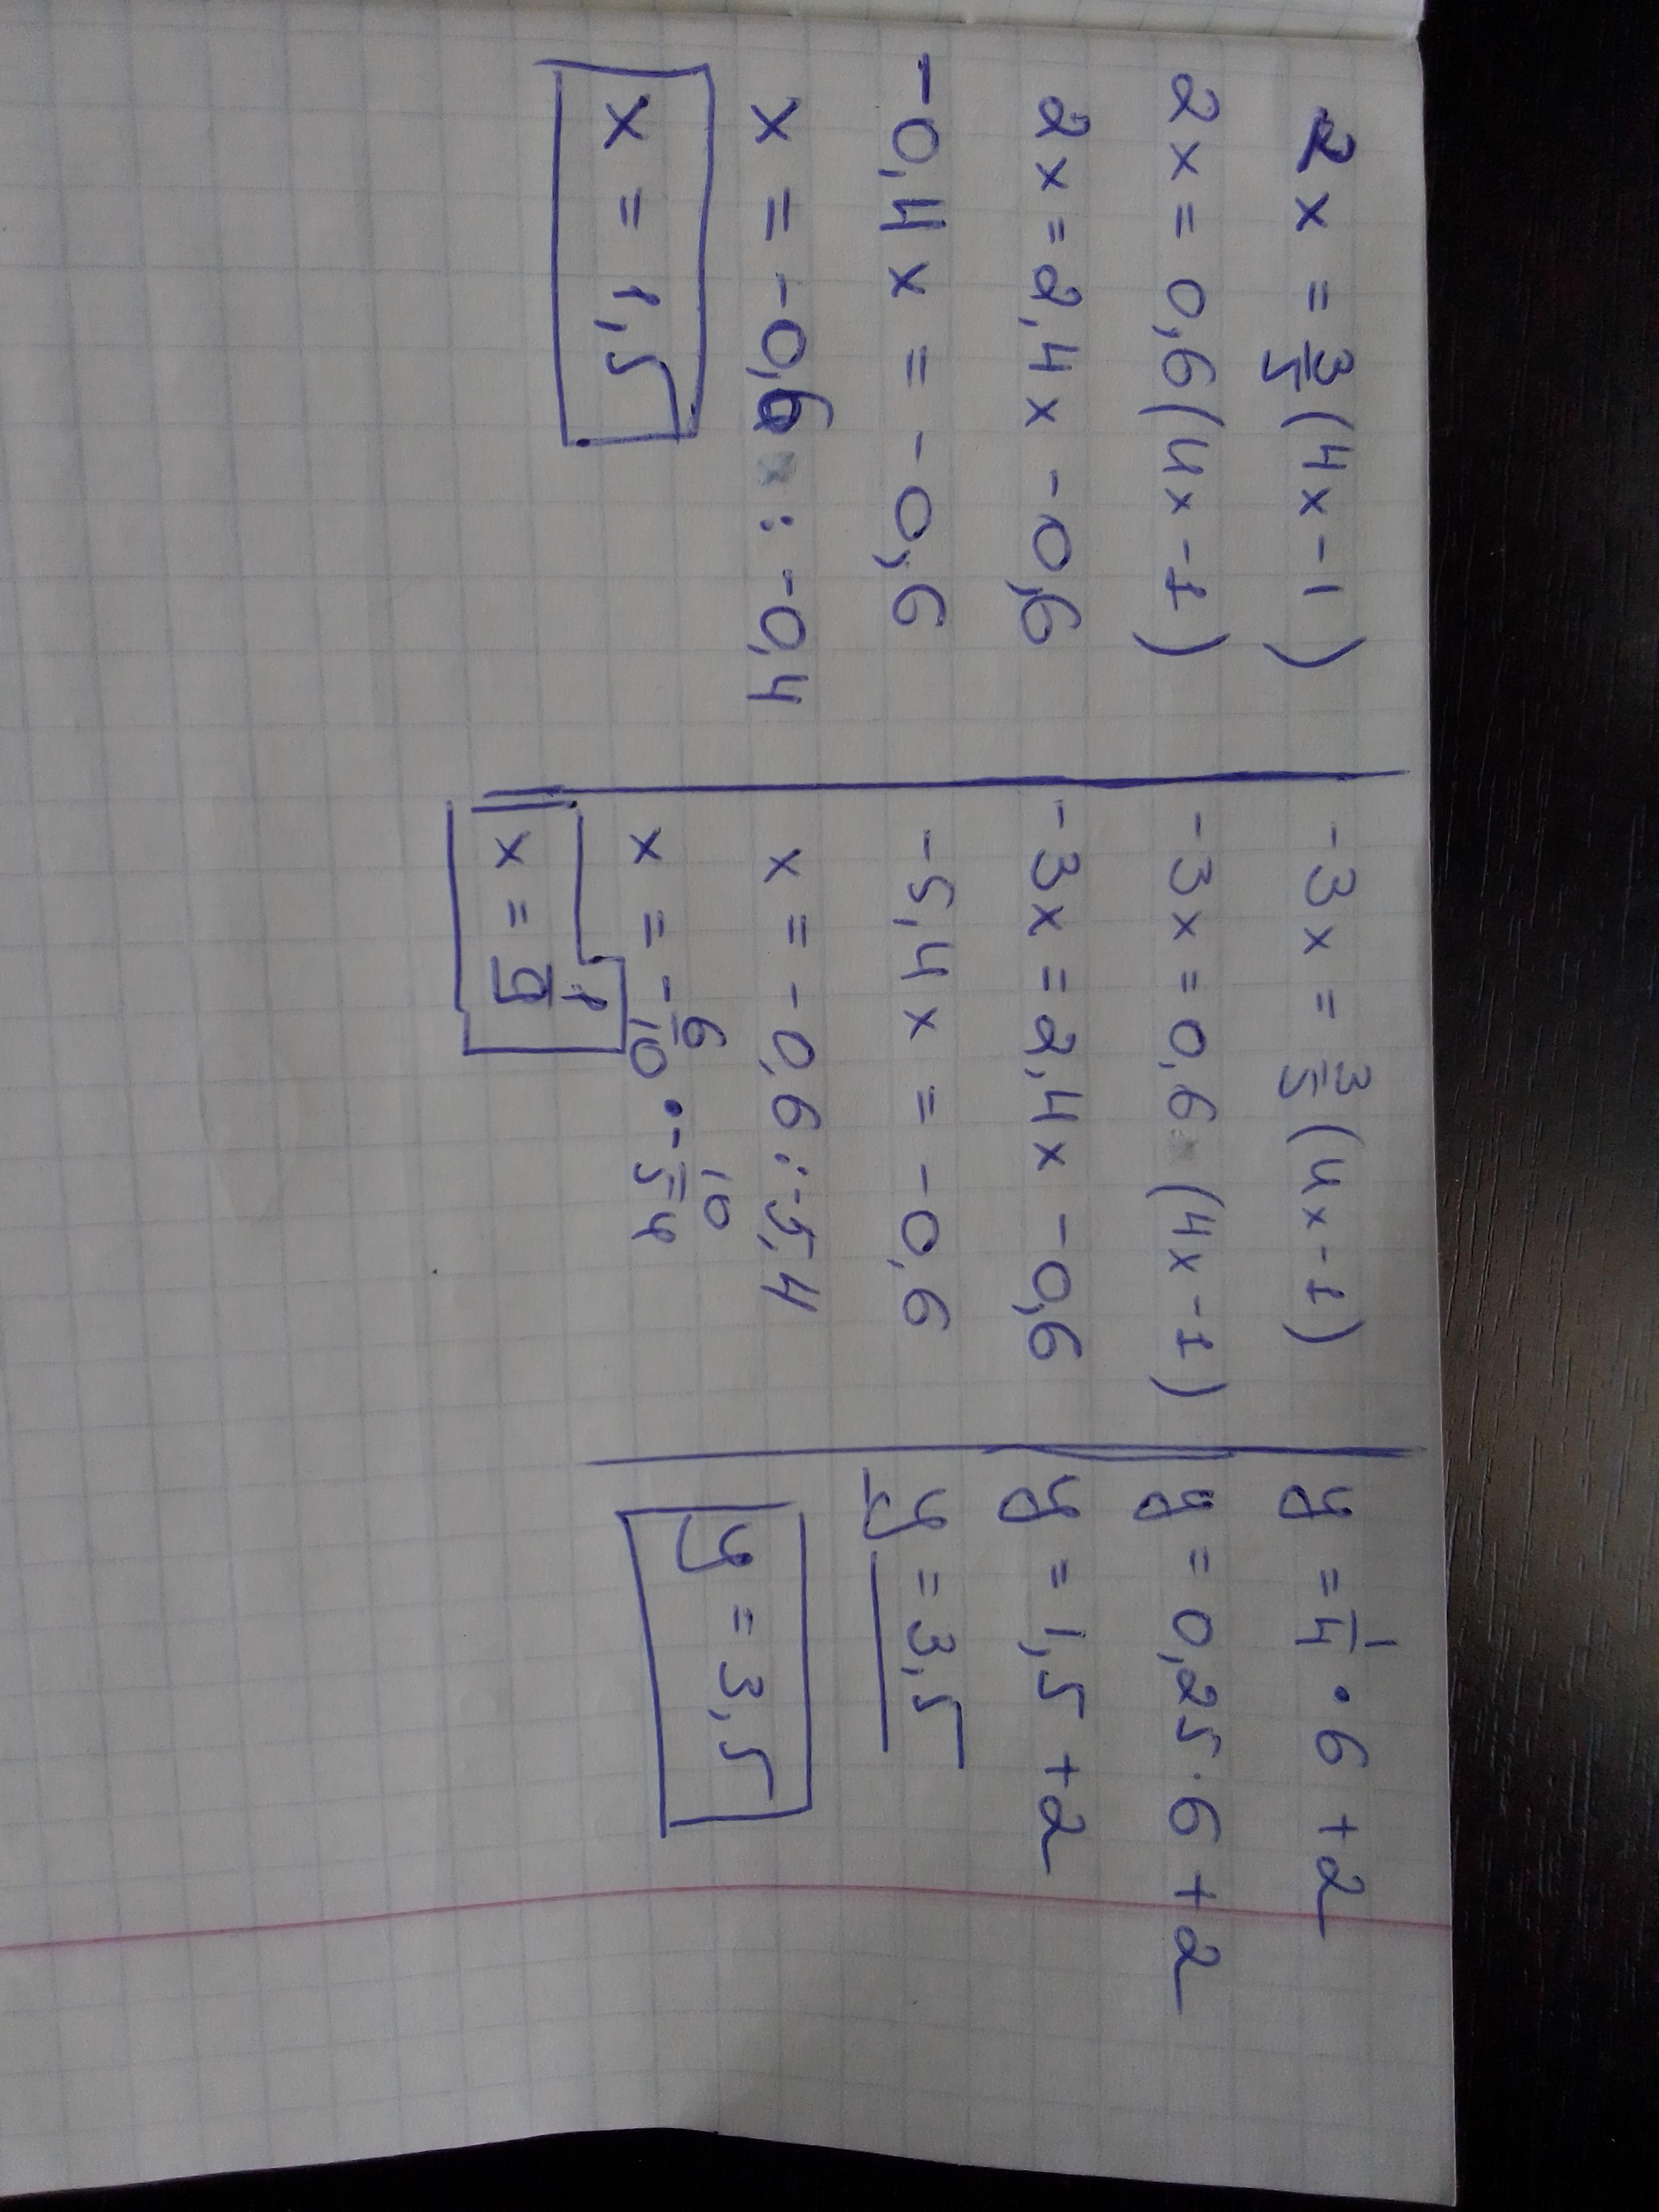 2x = 3/5 (4x - 1)
2x = 0,6 (4x - 1)
2x = 2,4x - 0,6
-0,4x = -0,6
x = -0,6 : -0,4
x = 1,5
-3x = 3/5 (4x - 1)
-3x = 0,6 (4x - 1)
-3x = 2,4x - 0,6
-5,4x = -0,6
x = -0,6 : -5,4
x = -6/10 · -10/54
x = 1/9
y = 1/4 · 6 + 2
y = 0,25 · 6 + 2
y = 1,5 + 2
y = 3,5
y = 3,5